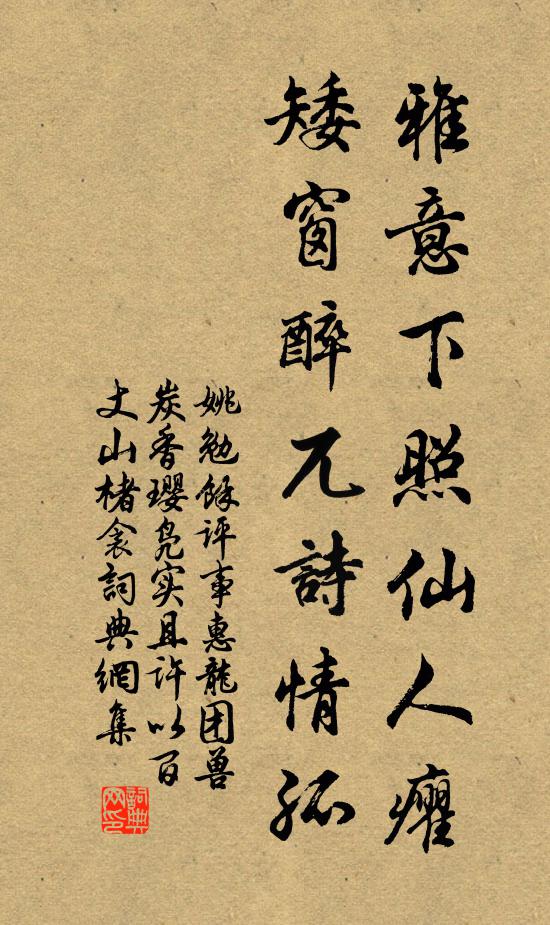 雅意下照仙人癯
矮窗醉兀詩情孤
姚勉餘评事惠龍团兽
炭香璎凫实且许以百
丈山楮衾詞典網集
詞典网印